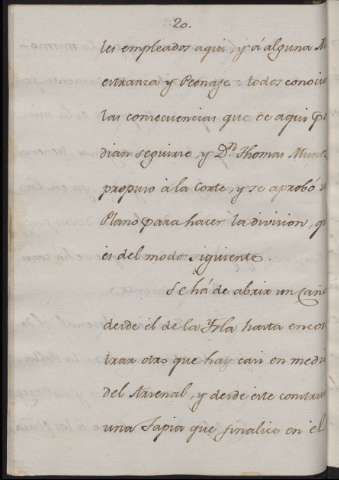 20.
les empleados aqui, y á alguna M
estranza y Peonaje: todos conocie
las consecuencias que de aqui po
dian seguirse, y Dn. Thomas Muño
propuso à la Corte, y se aprobó
Plano para hacer la division, q
es del modo siguiente.
Se há de abrir un Caño
desde el de la Ysla hasta encon
trar otro que hay casi en medi
del Arsenal, y desde este constru
una Tapia que finalice en el